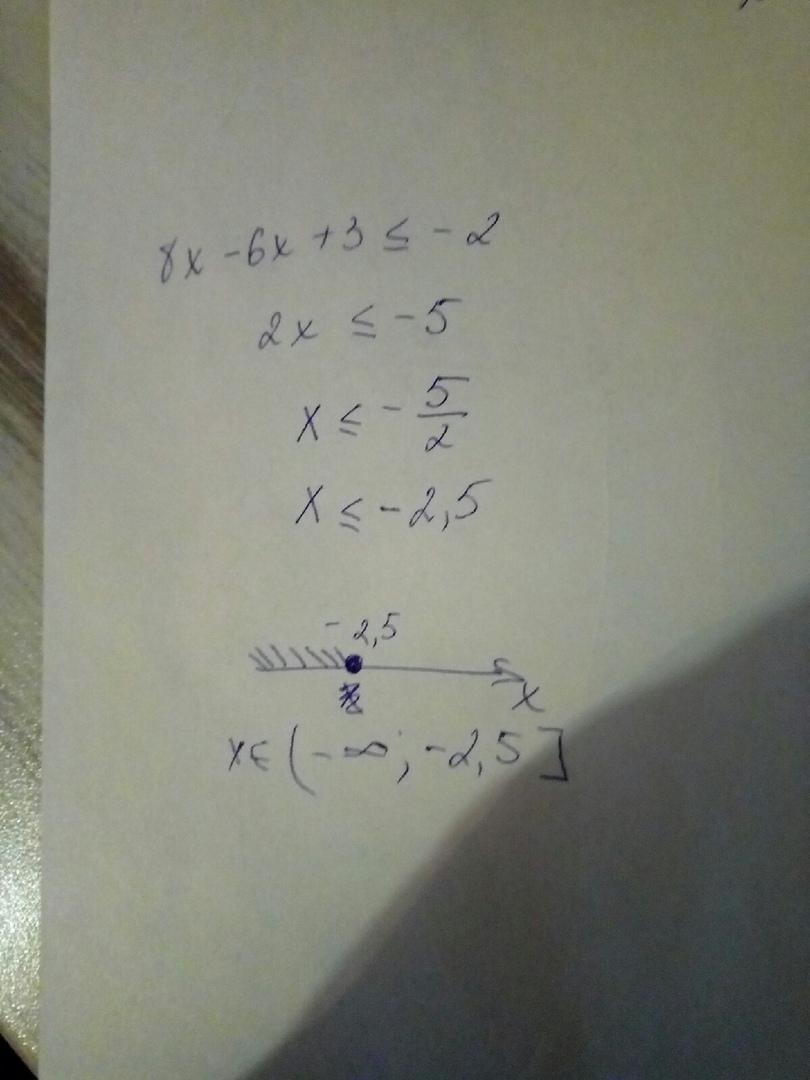 8x - 6x + 3 ≤ - 2
2x ≤ - 5
x ≤ - 5/2
x ≤ - 2,5
- 2,5
x
x ∈ (- ∞; - 2,5]